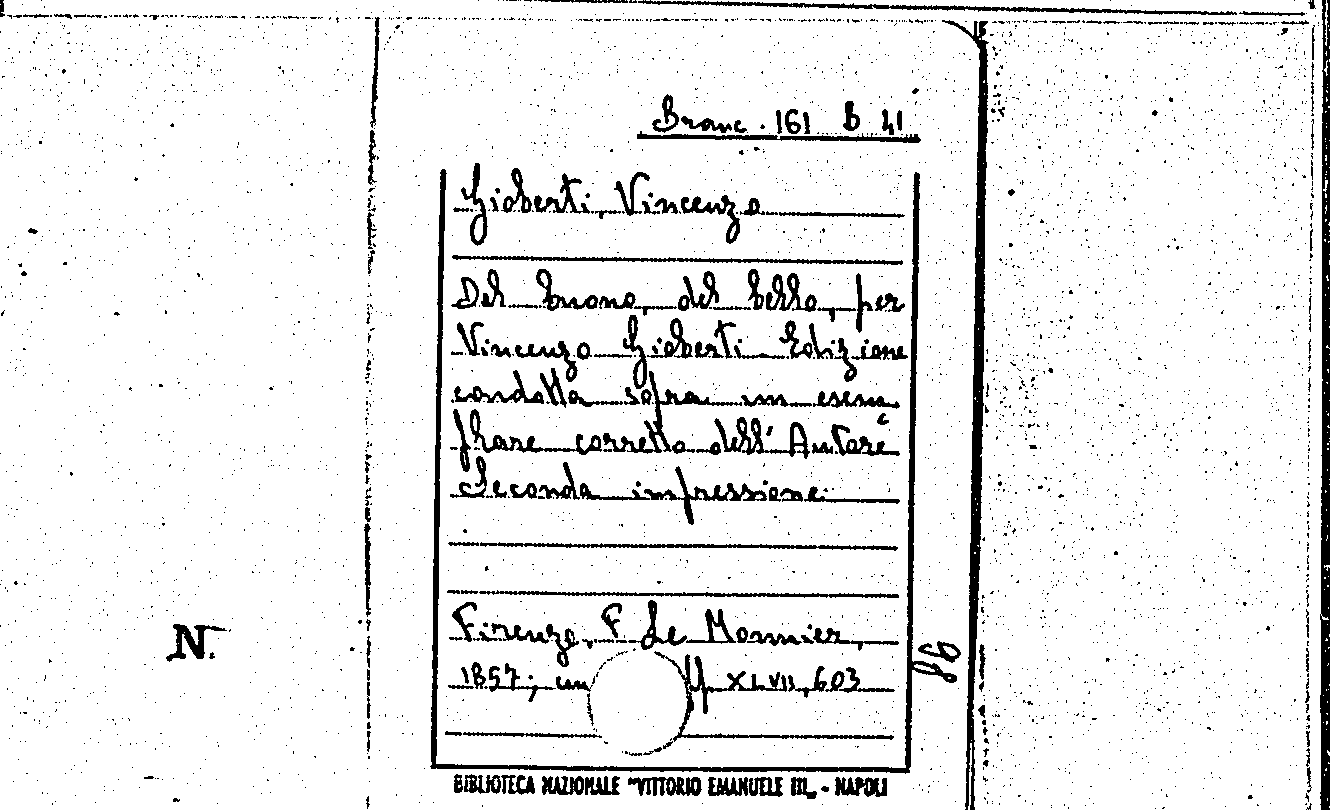 Branc. 161 B 41
Gioberti, Vincenzo
Del buono, del bello, per
Vincenzo Gioberti. Edizione
condotta sopra un esem
plare corretto dell' Autore
Seconda impressione.
Firenze, F. Le Monnier,
1857; in pp. XLVII, 603
86
N.
BIBLIOTECA NAZIONALE "VITTORIO EMANUELE III„ - NAPOLI